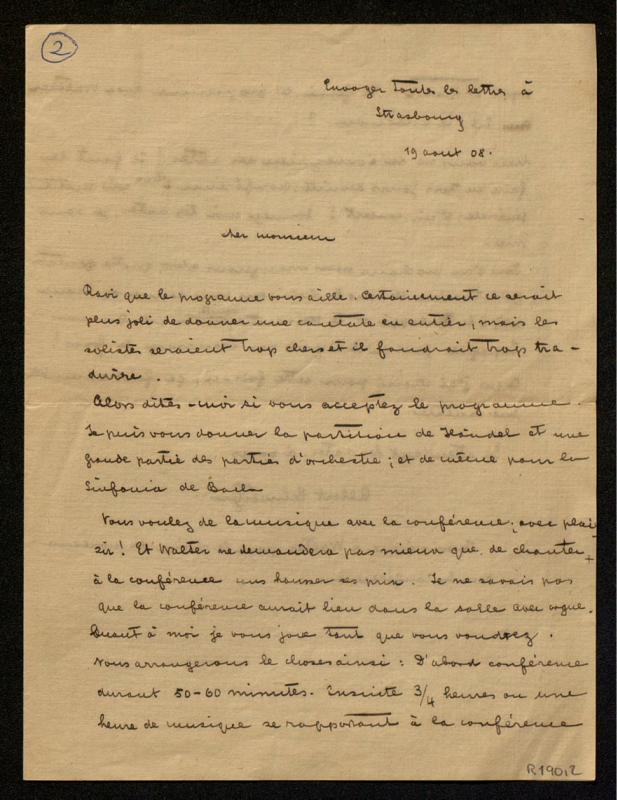 2
Envoyer toutes les lettres à
Strasbourg
19 aout 08.
cher monsieur
Ravi que le programme vous aille. Certainement ce serait
plus joli de donner une cantate en entier, mais les
solistes seraient trop chers et il faudrait trop tra-
duire.
Alors dites-moi si vous acceptez le programme.
Je puis vous donner la partition de Händel et une
grande partie des parties d'orchestre; et de même pour la
Sinfonia de Bach
Vous voulez de la musique avec la conférence; avec plai-
sir! Et Walter ne demandera pas mieux que de chanter
à la conférence sans hausser ses prix. Je ne savais pas
que la conférence aurait lieu dans la salle avec orgue.
Quant à moi je vous joue tant que vous voudrez.
Nous arrangerons les choses ainsi: D'abord conférence
durant 50-60 minutes. Ensuite 3/4 heures ou une
heure de musique se rapportant à la conférence
R190,2